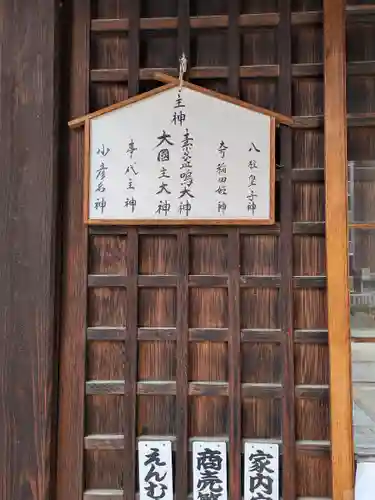 主神
八柱皇子神
奇稲田姫神
素盞鳴大神
大国主大神
事代主神
少彦名神
家内
商売
えんむ